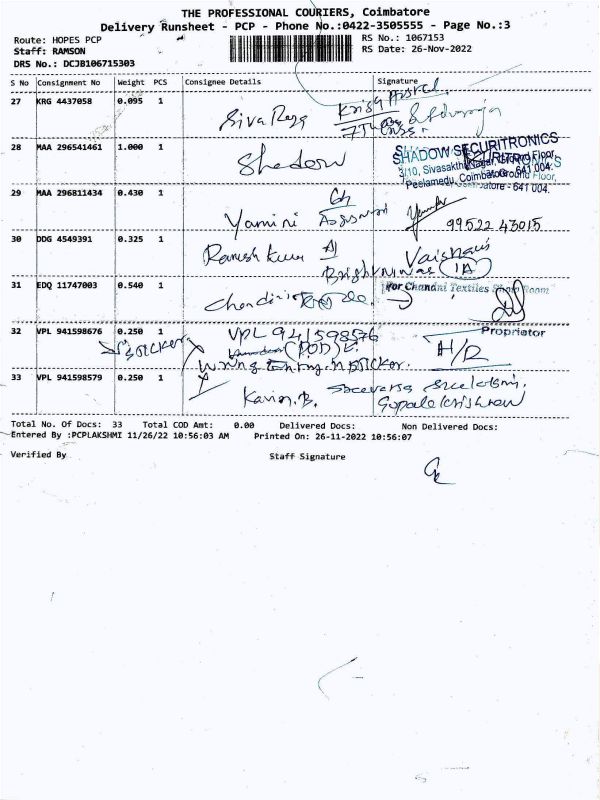 THE PROFESSIONAL COURIERS, Coimbatore
Delivery Runsheet - PCP - Phone No.:0422-3505555 - Page No.:3
Route: HOPES PCP
RS No.: 1067153
Staff: RAMSON
RS Date: 26-Nov-2022
DRS No.: DCJB106715303
S No Consignment No Weight PCS Consignee Details Signature
27 KRG 4437058 0.095 1 Siva Raja
28 MAA 296541461 1.000 1 Shadow
SHADOW SECURITRONICS
3/10, Sivasakthi Nagar, Ground Floor,
Peelamedu, Coimbatore - 641 004.
29 MAA 296811434 0.430 1 Yamini
99522 43015
30 DDG 4549391 0.325 1 Ramesh Kumar
31 EDQ 11747003 0.540 1
For Chandni Textiles Show Room
Proprietor
32 VPL 941598676 0.250 1 VPL 941598576
(POD)
H/R
33 VPL 941598579 0.250 1 Kavin. B.
Gopalakrishnan
Total No. Of Docs: 33 Total COD Amt: 0.00 Delivered Docs: Non Delivered Docs:
Entered By :PCPLAKSHMI 11/26/22 10:56:03 AM Printed On: 26-11-2022 10:56:07
Verified By Staff Signature